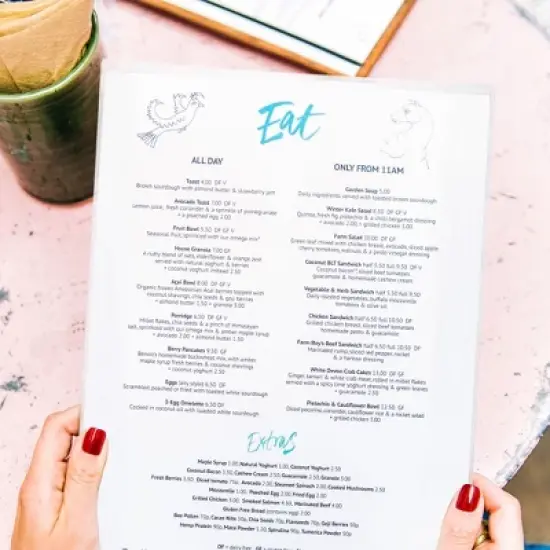 Eat
ALL DAY
Toast 4.00 DF V
Brown sourdough with almond butter & strawberry jam
Avocado Toast 7.00 DF V
Lemon juice, fresh coriander & a sprinkle of pomegranate
+ a poached egg 2.00
Fruit Bowl 5.50 DF V
Seasonal fruit, sprinkled with our omega mix
House Granola 7.00 GF
A nutty blend of oats, elderflower & orange zest
served with natural yoghurt & berries
+ coconut yoghurt instead 2.50
Acai Bowl 8.00 DF V
Organic frozen Amazonian Acai berries topped with
coconut shavings, chia seeds & goji berries
+ almond butter 1.50 + granola 3.00
Porridge 6.50 DF V
Millet flakes, chia seeds & a pinch of Himalayan
salt, sprinkled with our omega mix & amber maple syrup
+ avocado 2.00 + almond butter 1.50
Berry Pancakes 9.50 GF
homemade buckwheat mix, with amber
maple syrup, fresh berries & coconut shavings
+ coconut yoghurt 2.50
Eggs (any style) 6.50 DF
Scrambled, poached or fried with toasted white sourdough
3 Egg Omelette 6.50 DF
Cooked in coconut oil with toasted white sourdough
ONLY FROM 11AM
Garden Soup 5.00
Daily ingredients served with toasted brown sourdough
Winter Kale Salad 8.50 DF V
Quinoa, fresh fig, pistachio & a chilli bergamot dressing
+ avocado 2.00 + grilled chicken 3.00
Farm Salad 10.00 GF
Green leaf mixed with chicken breast, avocado, diced apple
cherry tomatoes, walnuts & a pesto vinegar dressing
Coconut BLT Sandwich half 5.50 full 9.50 DF V
Coconut bacon, sliced beef tomatoes,
guacamole & homemade cashew cream
Vegetable & Herb Sandwich half 5.50 full
Daily roasted vegetables, buffalo mozzarella,
tomatoes & olive oil
Chicken Sandwich half 6.50 full 10.50 DF
Grilled chicken breast, sliced beef tomatoes
homemade pesto & guacamole
Farm Boy's Beef Sandwich half 6.50 full 10.50 DF
Marinated rump, sliced red pepper, rocket
& a harissa dressing
White Devon Crab Cakes 13.00 DF GF
Ginger, lemon & white crab meat, rolled in millet flakes
served with a spicy lime yoghurt dressing & green leaves
+ guacamole 2.50
Pistachio & Cauliflower Bowl 12.50 GF
Diced pecorino, coriander, cauliflower rice & a rocket salad
+ grilled chicken 3.00
Extras
Maple Syrup 1.00, Natural Yoghurt 1.00, Coconut Yoghurt 2.50
Coconut Bacon 1.50, Cashew Cream 2.50, Guacamole 2.50, Granola 3.00
Fresh Berries 1.50, Diced tomato 70p, Avocado 2.00, Steamed Spinach 2.00, Grilled Mushrooms 2.50
Mozzarella 1.00, Poached Egg 2.00, Fried Egg 2.00
Grilled Chicken 3.00, Smoked Salmon 4.50, Marinated Beef 4.00
Gluten Free Bread (contains eggs) 2.00
Bee Pollen 70p, Cacao Nibs 50p, Chia Seeds 70p, Flaxseeds 70p, Goji Berries 50p
Hemp Protein 90p, Maca Powder 1.50, Spirulina 90p, Turmeric Powder 50p
DF = dairy free